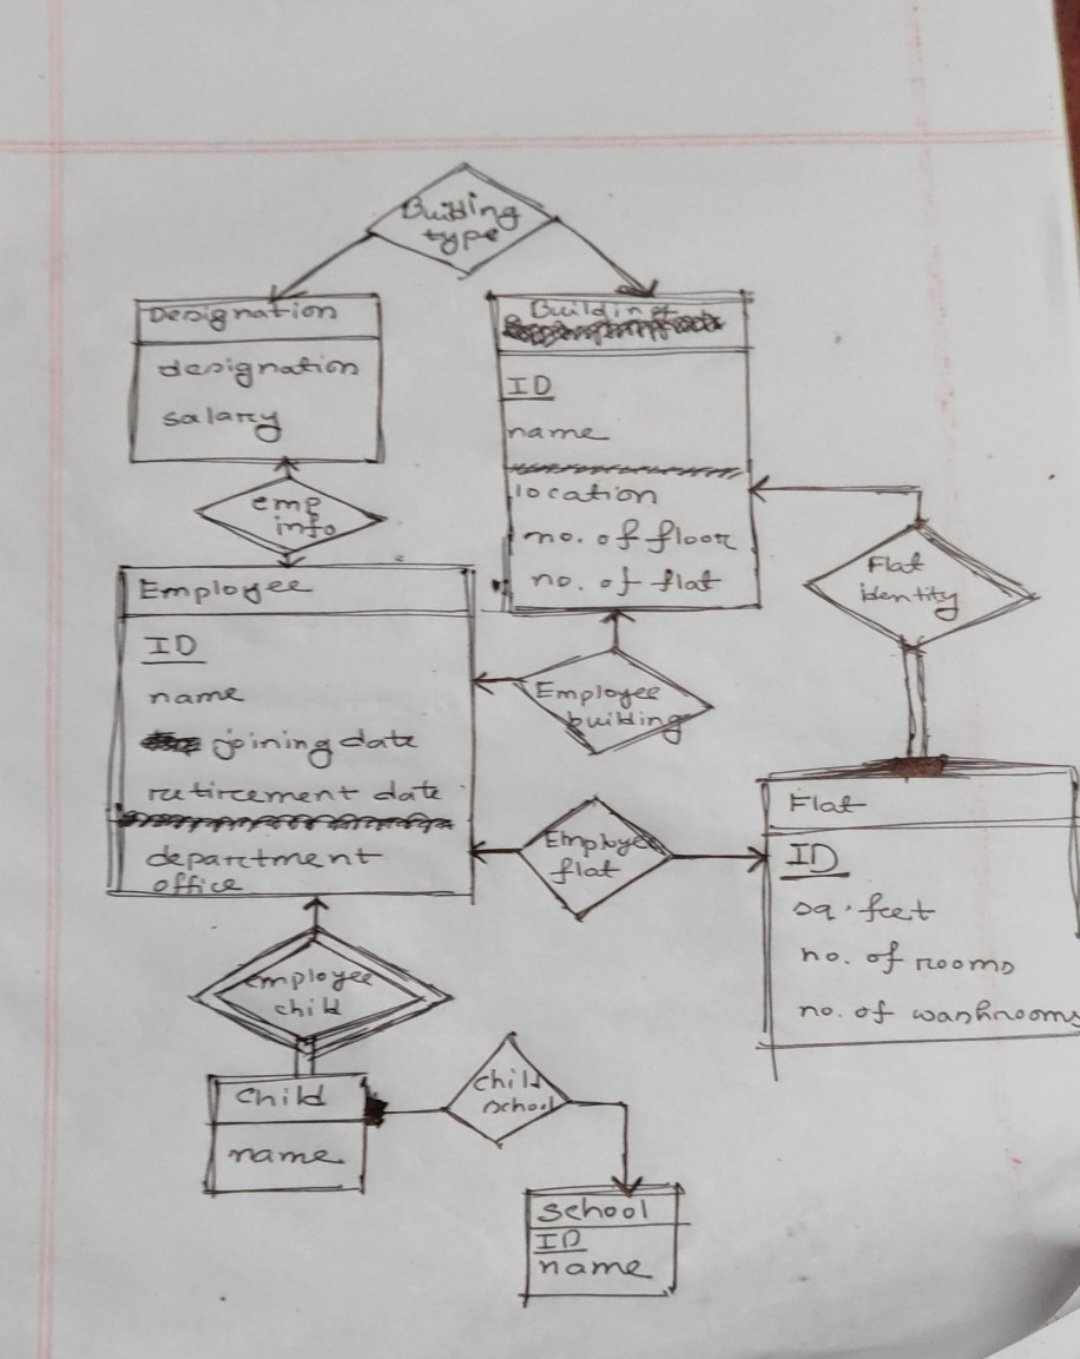 Building
type
Designation
designation
salary
Building
ID
name
location
no. of floor
no. of flat
emp
info
Flat
identity
Employee
ID
name
joining date
retirement date
department
office
Employee
building
Employee
flat
Flat
ID
sq. feet
no. of rooms
no. of washrooms
employee
child
Child
name
child
school
School
ID
name